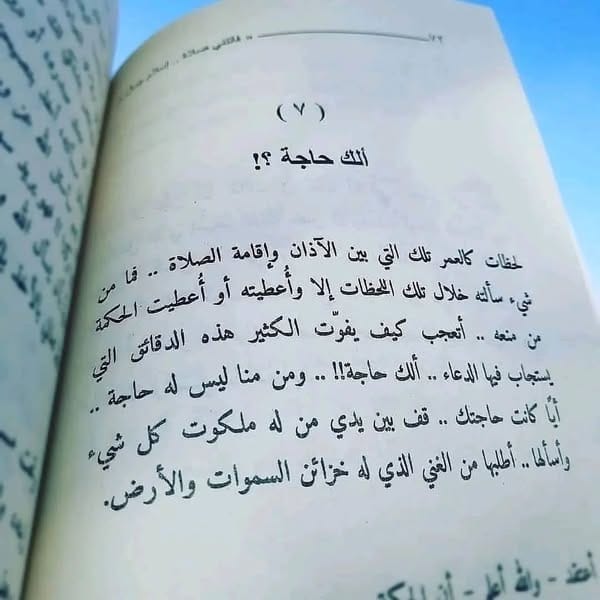 فاتتني صلاة
(٧)
ألك حاجة ؟!
لحظات كالعمر تلك التي بين الآذان وإقامة الصلاة .. فما من
شيء سألته خلال تلك اللحظات إلا وأُعطيته أو أُعطيت الحكمة
من منعه .. أتعجب كيف يفوّت الكثير هذه الدقائق التي
يستجاب فيها الدعاء .. ألك حاجة!! .. ومن منا ليس له حاجة ..
أيًا كانت حاجتك .. قف بين يدي من له ملكوت كل شيء
وأسألها .. أطلبها من الغني الذي له خزائن السموات والأرض.
أعتقد - والله أعلم - أن